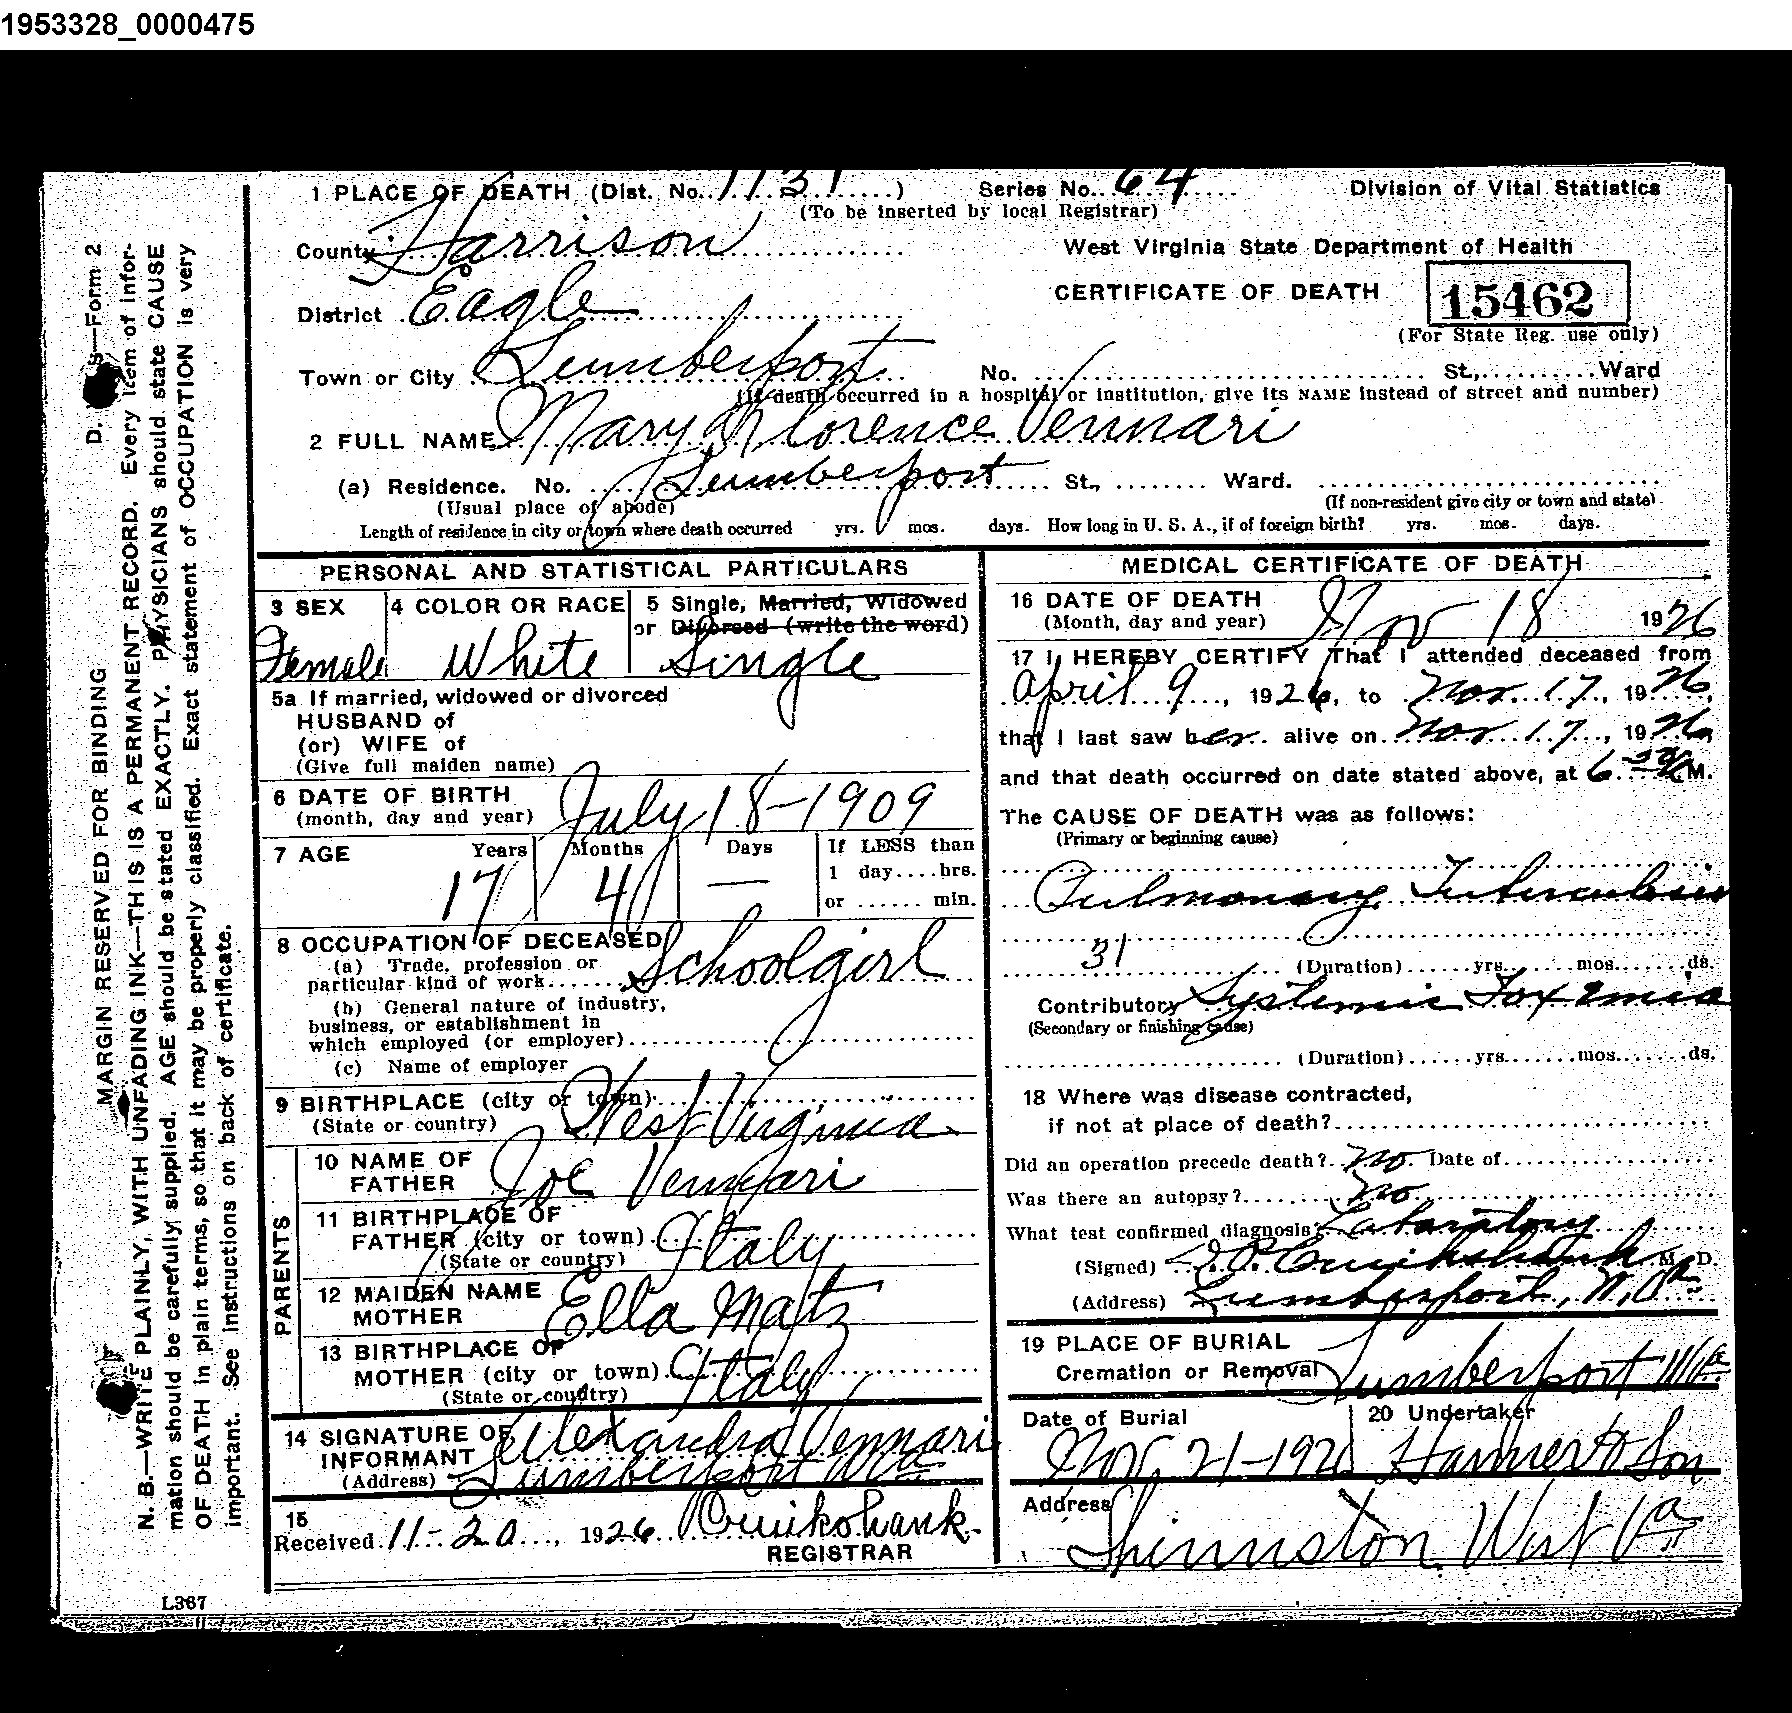 1953328_0000475
1 PLACE OF DEATH (Dist. No. 1131) Series No. 64 Division of Vital Statistics
(To be inserted by local Registrar)
County Harrison West Virginia State Department of Health
District Eagle CERTIFICATE OF DEATH 15462
(For State Reg. use only)
Town or City Lumberport No. St., Ward
(If death occurred in a hospital or institution, give its NAME instead of street and number)
2 FULL NAME Mary Florence Vennari
(a) Residence. No. Lumberport St., Ward.
(Usual place of abode) (If non-resident give city or town and state)
Length of residence in city or town where death occurred yrs. mos. days. How long in U. S. A., if of foreign birth? yrs. mos. days.
PERSONAL AND STATISTICAL PARTICULARS
3 SEX 4 COLOR OR RACE 5 Single, Married, Widowed
or Divorced (write the word)
Female White Single
5a If married, widowed or divorced
HUSBAND of
(or) WIFE of
(Give full maiden name)
6 DATE OF BIRTH
(month, day and year) July 18-1909
7 AGE Years Months Days If LESS than
1 day....hrs.
17 4 — or ...... min.
8 OCCUPATION OF DECEASED
(a) Trade, profession or
particular kind of work Schoolgirl
(b) General nature of industry,
business, or establishment in
which employed (or employer)
(c) Name of employer
9 BIRTHPLACE (city or town)
(State or country) West Virginia
PARENTS
10 NAME OF
FATHER Joe Vennari
11 BIRTHPLACE OF
FATHER (city or town) Italy
(State or country)
12 MAIDEN NAME
MOTHER Ella Matz
13 BIRTHPLACE OF
MOTHER (city or town) Italy
(State or country)
14 SIGNATURE OF
INFORMANT Alexandra Vennari
(Address) Lumberport W Va
15
Received 11-20, 1926 Cruikshank
REGISTRAR
MEDICAL CERTIFICATE OF DEATH
16 DATE OF DEATH
(Month, day and year) Nov 18 1926
17 I HEREBY CERTIFY That I attended deceased from
April 9, 1926, to Nov. 17, 1926,
that I last saw her alive on Nov 17, 1926,
and that death occurred on date stated above, at 6 M.
The CAUSE OF DEATH was as follows:
(Primary or beginning cause)
Pulmonary Tuberculosis
31
(Duration) yrs. mos. ds.
Contributory Systemic Toxemia
(Secondary or finishing cause)
(Duration) yrs. mos. ds.
18 Where was disease contracted,
if not at place of death?
Did an operation precede death? No Date of
Was there an autopsy? No
What test confirmed diagnosis? Laboratory
(Signed) Cruikshank M. D.
(Address) Lumberport, W. Va
19 PLACE OF BURIAL
Cremation or Removal Lumberport W Va
Date of Burial 20 Undertaker
Nov. 21-1926 Harmer & Son
Address
Shinnston West Va
MARGIN RESERVED FOR BINDING D. S—Form 2
N. B.—WRITE PLAINLY, WITH UNFADING INK—THIS IS A PERMANENT RECORD. Every item of infor-
mation should be carefully supplied. AGE should be stated EXACTLY. PHYSICIANS should state CAUSE
OF DEATH in plain terms, so that it may be properly classified. Exact statement of OCCUPATION is very
important. See instructions on back of certificate.
L367